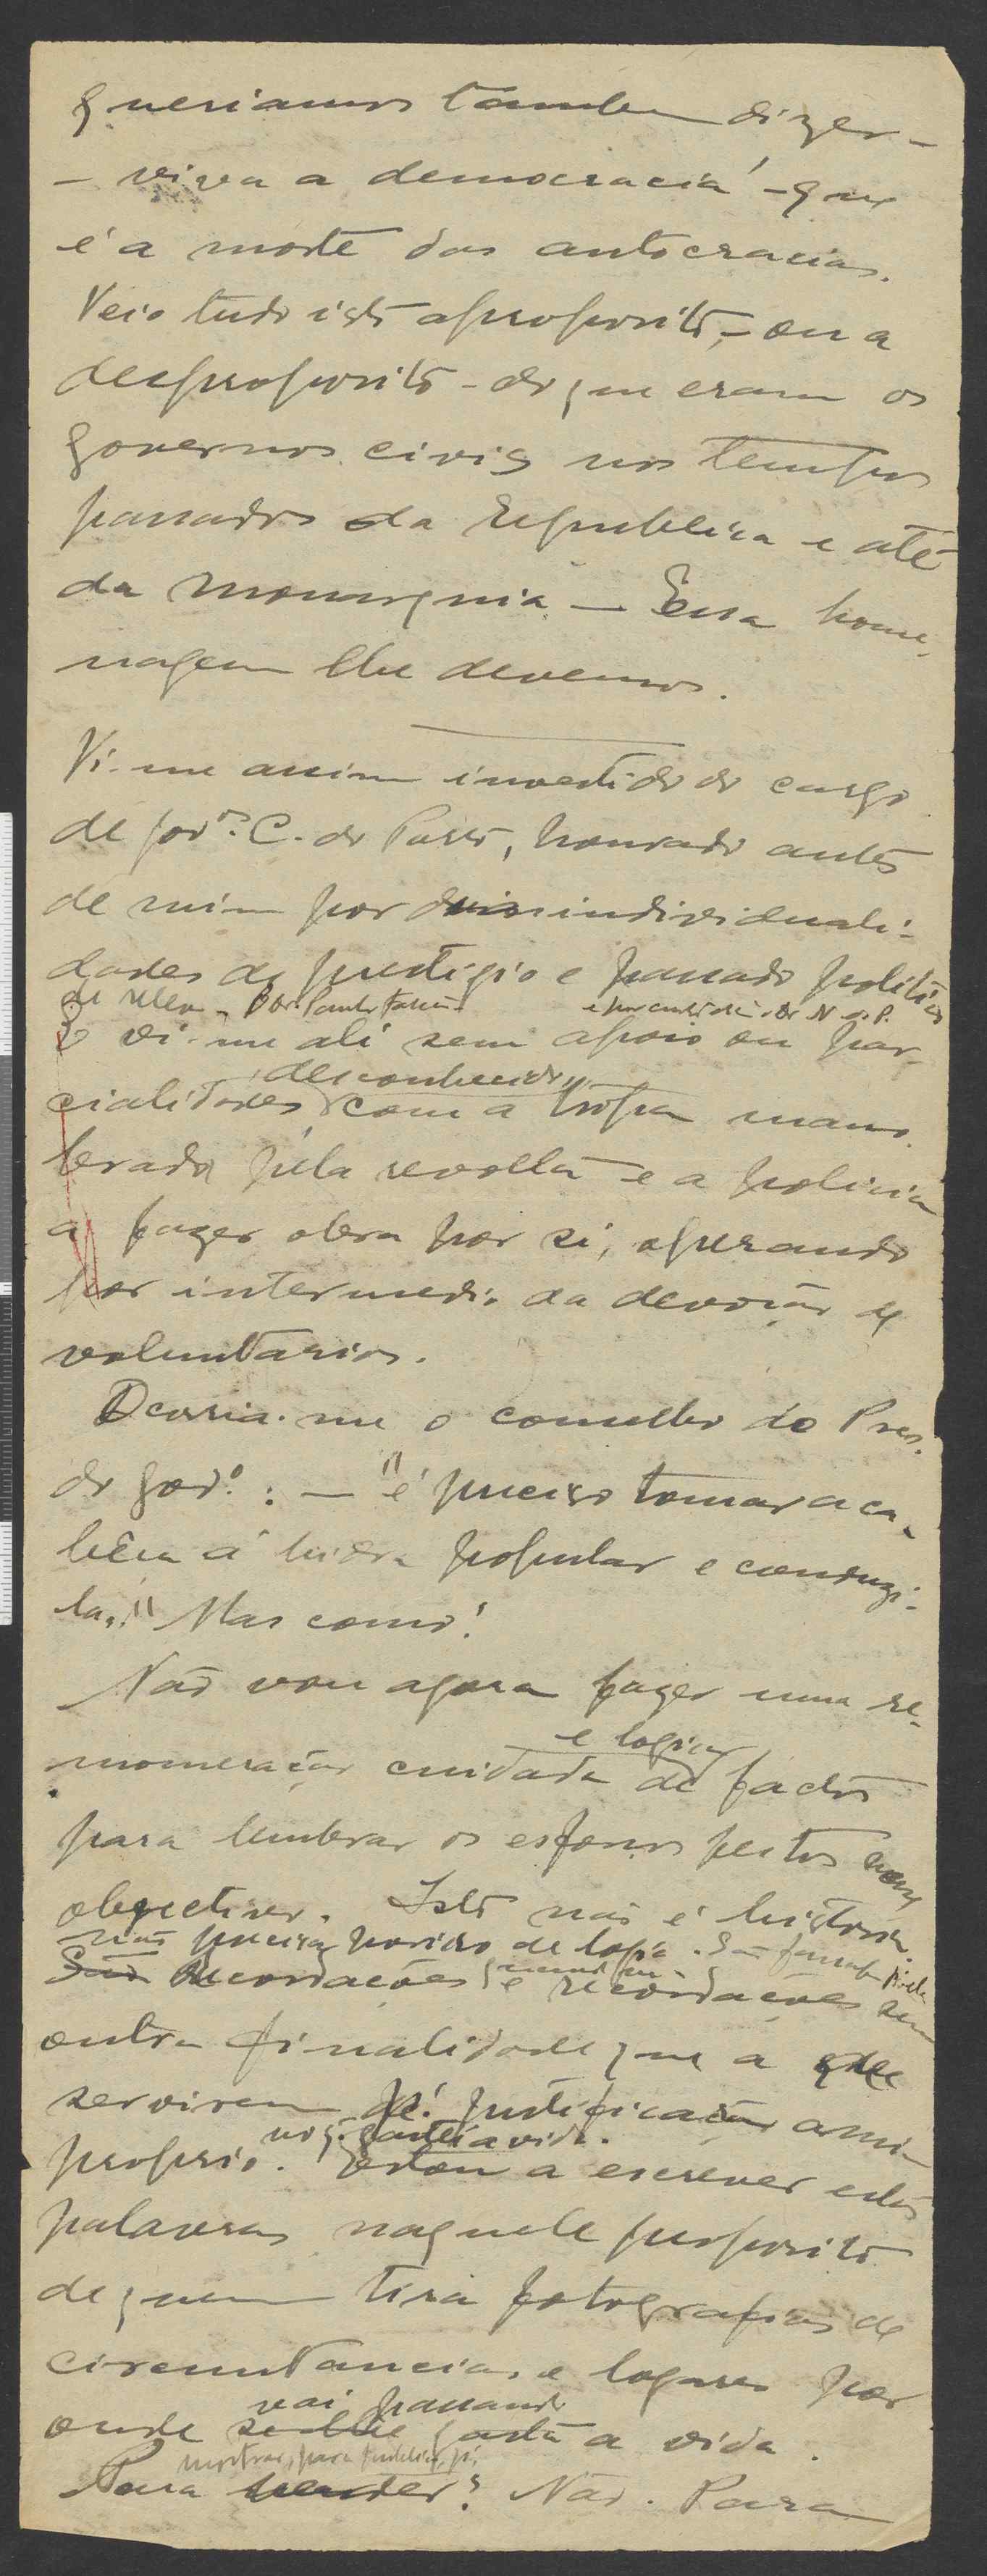 queriamos tambem dizer -
- viva a democracia - que
é a morte das autocracias.
Veio tudo isto aproposito, - ou a
desproposito - do que eram os
governos civis nos tempos
passados da Republica e até
da monarquia - Essa home,
nagem lhe devemos.
Vi-me assim investido do cargo
de govor. C. do Porto, honrado antes
de mim por dois individuali-
dades de prestigio e passado politico
de relevo - Dor.
E vi-me ali sem apoio ou par-
desconhecido,
cialidades, com a tropa mano.
brada pela revolta e a policia
a fazer obra por si, operando
por intermedio da devoção de
voluntarios.
Ocorria-me o conselho do Pres.
do govo. : - "é preciso tomar a ca-
bêça á hidra popular e conduzi-
la." Mas como!
Não vou agora fazer uma re-
e logica
momeração cuidada de factos
para lembrar os esforços feitos
objectivos. Isto não é historia.
não precisa de logica. São
São Recordações e recordações sem
outra finalidade que a de
servirem de justificação a mim
proprio.
nos gasta a vida.
Estou a escrever estas
palavras naquele proposito
de quem tira fotografias de
circunstancias e logares por
vai passando
onde se lhe gasta a vida.
mostrar, para
Para vender? Não. Para